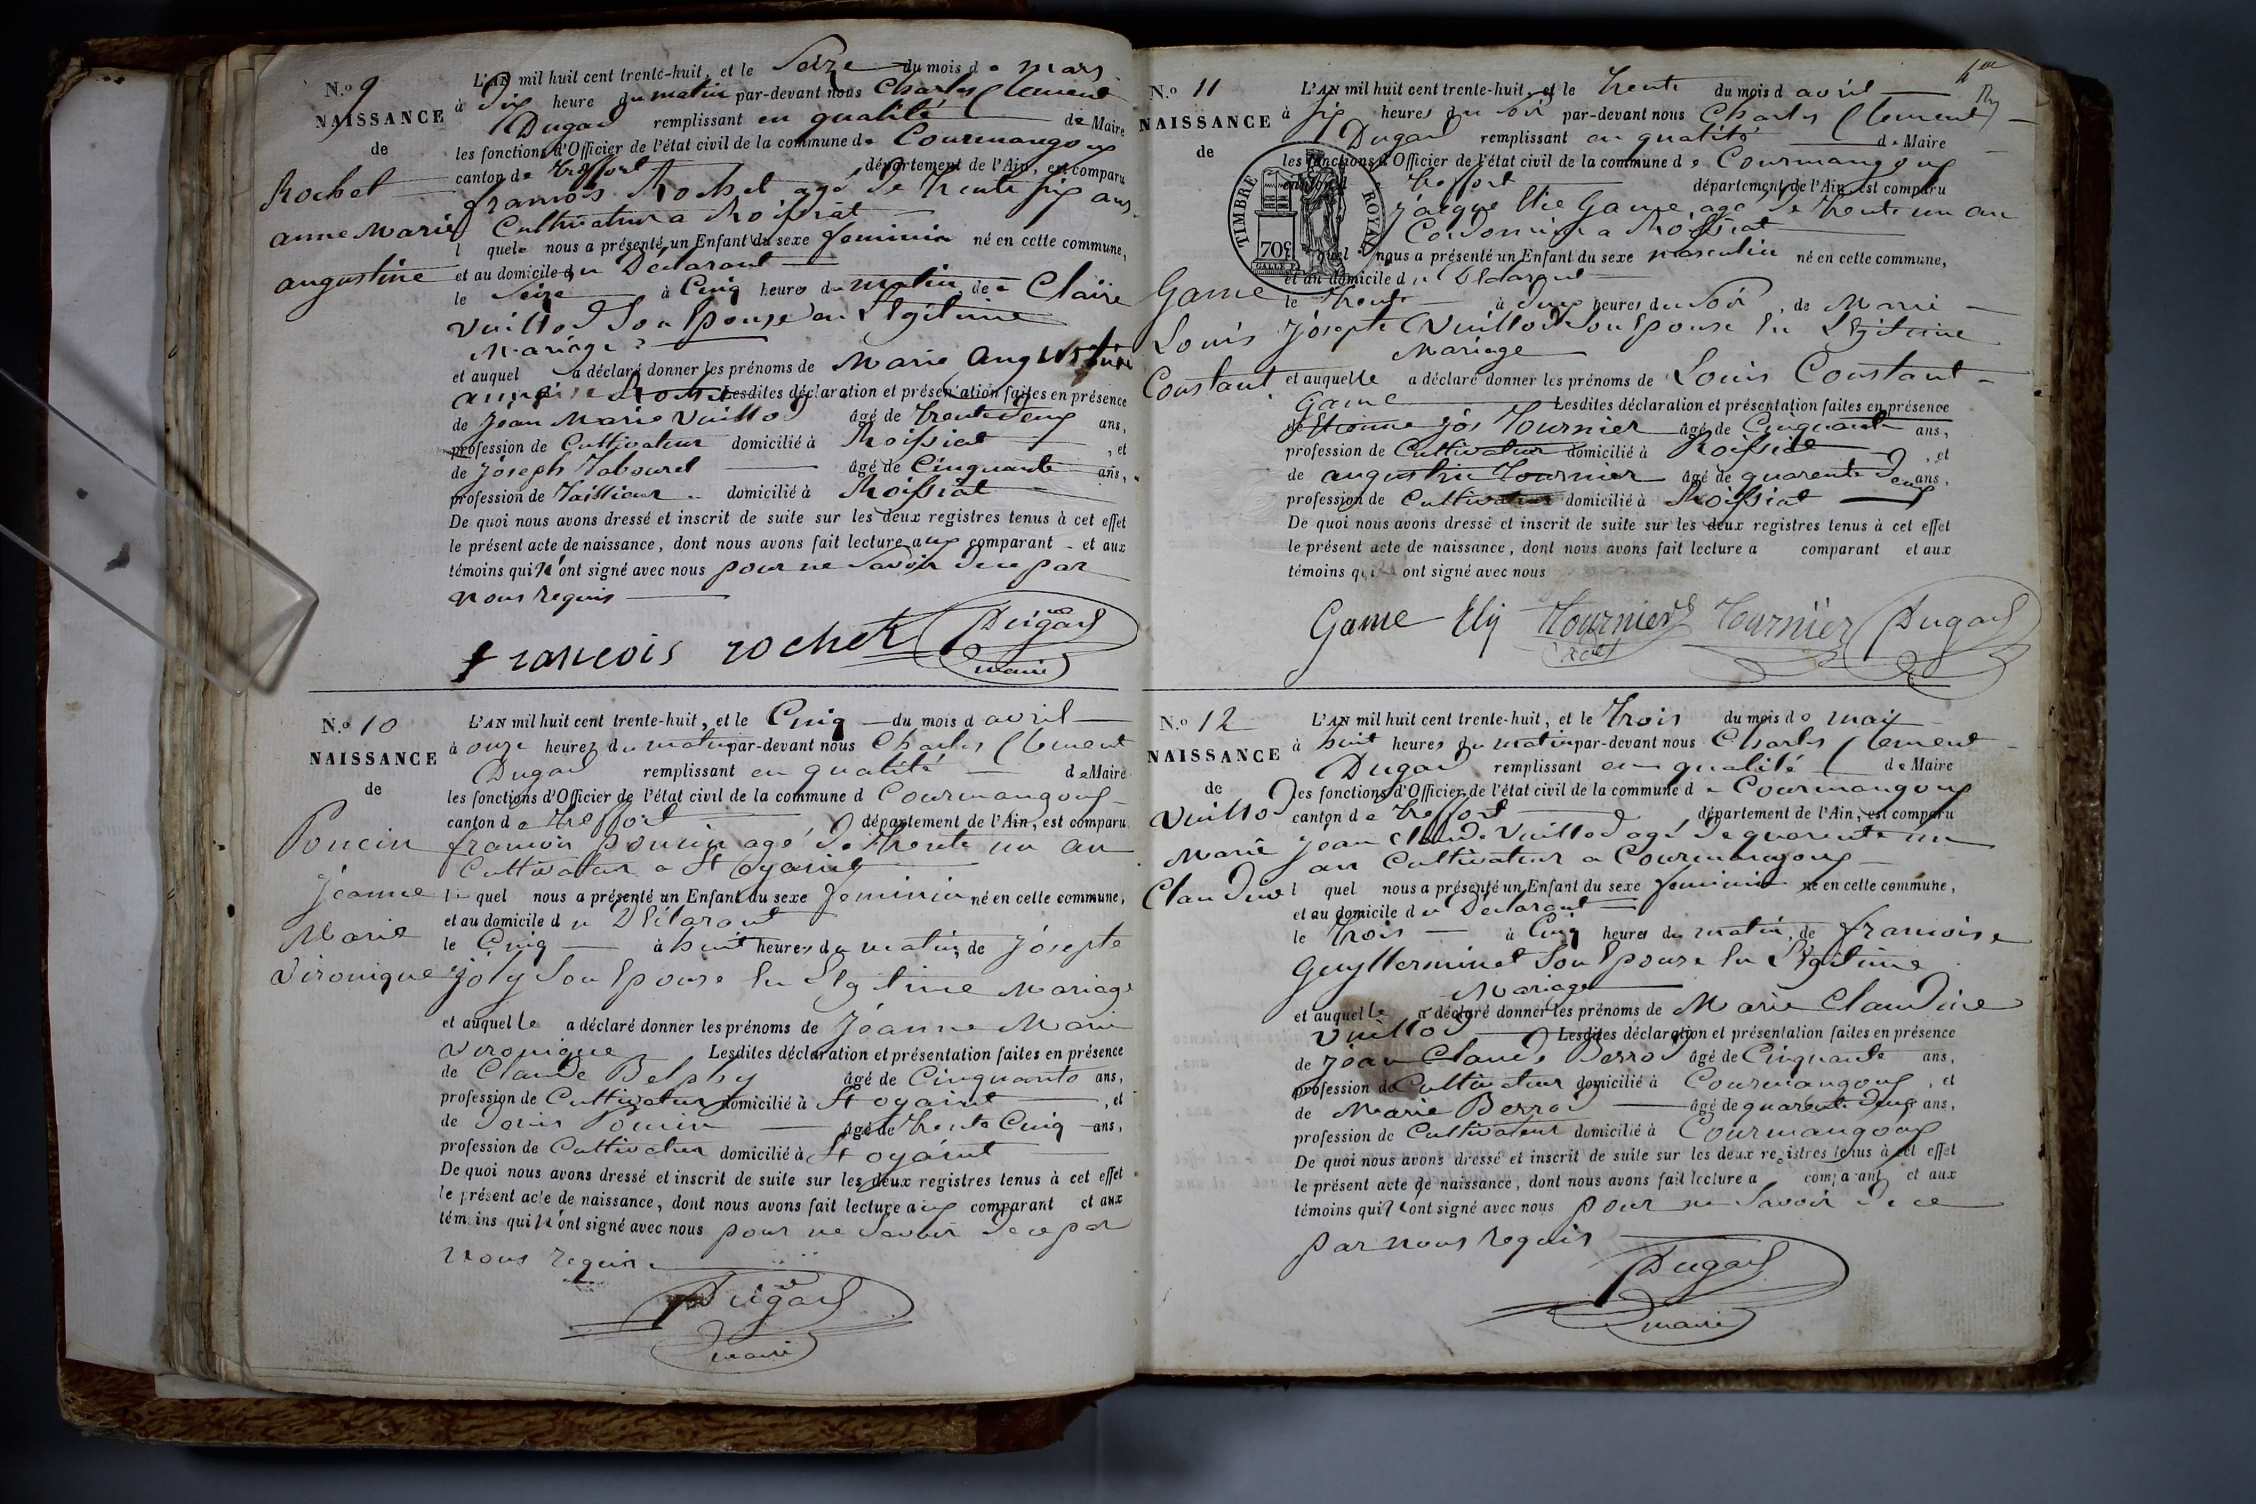 N.o 9
NAISSANCE
de
Rochet
anne Marie
augustine
L'AN mil huit cent trente-huit, et le Seize du mois de mars
à Dix heure du matin par-devant nous Charles Clement
Dugad remplissant en qualité de Maire
les fonctions d'Officier de l'état civil de la commune de Courmangoux
canton de treffort département de l'Ain, est comparu
françois Rochet agé de trente six ans
Cultivateur a Roissiat
l quel nous a présenté un Enfant du sexe feminin né en cette commune,
et au domicile du Déclarant
le Seize à Cinq heures du matin de Claire
Vuillod Son Epouse en Légitime
Mariage
et auquel a déclaré donner les prénoms de Marie Augustine
Rochet Lesdites déclaration et présentation faites en présence
de Jean Marie Vuillod âgé de trente deux ans,
profession de Cultivateur domicilié à Roissiat , et
de Joseph Tabouret âgé de Cinquante ans,
profession de Taillieur domicilié à Roissiat
De quoi nous avons dressé et inscrit de suite sur les deux registres tenus à cet effet
le présent acte de naissance, dont nous avons fait lecture aux comparant et aux
témoins qui n'ont signé avec nous pour ne Savoir de ce par
nous requis
françois rochet Dugad
maire
N.o 10
NAISSANCE
de
Poncin
Jeanne
Marie
Vironique
L'AN mil huit cent trente-huit, et le Cinq du mois d avril
à onze heures du matin par-devant nous Charles Clement
Dugad remplissant en qualité de Maire
les fonctions d'Officier de l'état civil de la commune d Courmangoux
canton de treffort département de l'Ain, est comparu
francois poncin agé de trente un an
Cultivateur a St oyarint
le quel nous a présenté un Enfant du sexe feminin né en cette commune,
et au domicile du Déclarant
le Cinq à huit heures du matin, de Josepte
joly Son Epouse En Legitime Mariage
et auquelle a déclaré donner les prénoms de Jéanne Marie
Vironique Lesdites déclaration et présentation faites en présence
de Claude Belphy âgé de Cinquante ans,
profession de Cultivateur domicilié à St oyarint , et
de Poncin âgé de trente Cinq ans,
profession de Cultivateur domicilié à St oyarint
De quoi nous avons dressé et inscrit de suite sur les deux registres tenus à cet effet
le présent acte de naissance, dont nous avons fait lecture aux comparant et aux
témoins qui n'ont signé avec nous pour ne Savoir de ce par
nous requis
Dugad
maire
N.o 11
NAISSANCE
de
Game
Louis
Constant
TIMBRE ROYAL
70c
L'AN mil huit cent trente-huit, et le trente du mois d avril
à six heures du soir par-devant nous Charles Clement
Dugad remplissant en qualité de Maire
les fonctions d'Officier de l'état civil de la commune de Courmangoux
canton d treffort département de l'Ain, est comparu
jacque Elie Game, agé de trente un an
Cordonnier a Roissiat
quel nous a présenté un Enfant du sexe masculin né en cette commune,
et au domicile du Déclarant
le trente à deux heures du Soir, de Marie
Josepte Vuillod Son Epouse En Légitime
Mariage
et auquelle a déclaré donner les prénoms de Louis Constant
Game Lesdites déclaration et présentation faites en présence
de Etienne jos Tournier âgé de Cinquante ans,
profession de Cultivateur domicilié à Roissiat , et
de augustin Tournier âgé de quarente deux ans,
profession de Cultivateur domicilié à Roissiat
De quoi nous avons dressé et inscrit de suite sur les deux registres tenus à cet effet
le présent acte de naissance, dont nous avons fait lecture a comparant et aux
témoins qui ont signé avec nous
Game Ely Tournier Tournier Dugad
N.o 12
NAISSANCE
de
Vuillod
Marie
Claudine
L'AN mil huit cent trente-huit, et le trois du mois de mai
à huit heures du matin par-devant nous Charles Clement
Dugad remplissant en qualité de Maire
les fonctions d'Officier de l'état civil de la commune de Courmangoux
canton de treffort département de l'Ain, est comparu
jéan Claude Vuillod agé de quarente un
an Cultivateur a Courmangoux
l quel nous a présenté un Enfant du sexe feminin né en cette commune,
et au domicile du Déclarant
le trois à Cinq heures du matin, de francoise
Guyllerminet Son Epouse En Légitime
Mariage
et auquelle a déclaré donner les prénoms de Marie Claudine
Vuillod Lesdites déclaration et présentation faites en présence
de jéan Claude Berrod âgé de Cinquante ans,
profession de Cultivateur domicilié à Courmangoux , et
de Marie Berrod âgé de quarente deux ans,
profession de Cultivateur domicilié à Courmangoux
De quoi nous avons dressé et inscrit de suite sur les deux registres tenus à cet effet
le présent acte de naissance, dont nous avons fait lecture a comparant et aux
témoins qui n'ont signé avec nous pour ne Savoir de ce
par nous requis
Dugad
maire